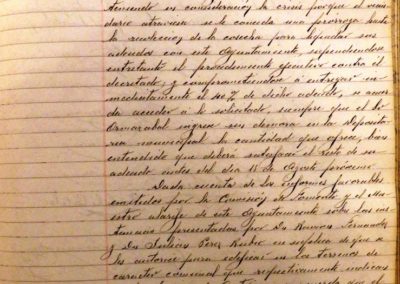 teniendo en consideración la crisis porque el vecin
dario atraviesa se le conceda una prorroga hasta
la recolección de la cosecha para liquidar sus
adeudos con este Ayuntamiento, suspendiendose
entretanto el procedimiento ejecutivo contra él
decretado, y comprometiendose á entregar in-
mediatamente el 40% de dicho adeudo, se acuer
da acceder á lo solicitado, siempre que el
ingrese sin demora en la Deposita
ria municipal la cantidad que ofrece, bien
entendido que deberá satisfacer el resto de su
adeudo antes del dia 15 de Agosto próximo.
Dada cuenta de los informes favorables
emitidos por la Comisión de Fomento y el Ma
estro alarife de este Ayuntamiento sobre las ins
tancias presentadas por Dn Ramon Fernandez
y Dn Julian Perez Rubio en suplica de que se
les autorice para edificar en los terrenos de
caracter comunal que respectivamente indican